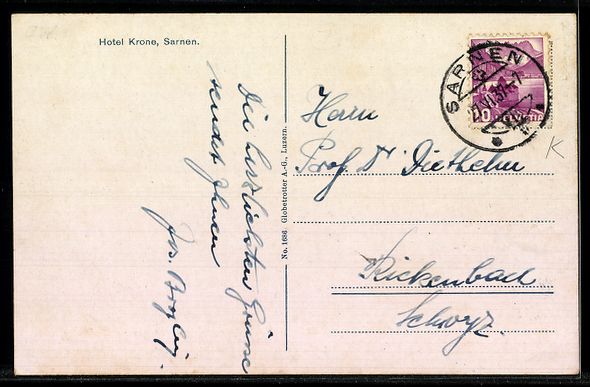 Hotel Krone, Sarnen.
Die herzlichsten Grüsse
sendet Ihnen
Jos.
No. 1686 Globetrotter A.-G., Luzern.
SARNEN
10 HELVETIA
Herrn
Prof. Dr Diethelm
Rickenbach
Schwyz.
K